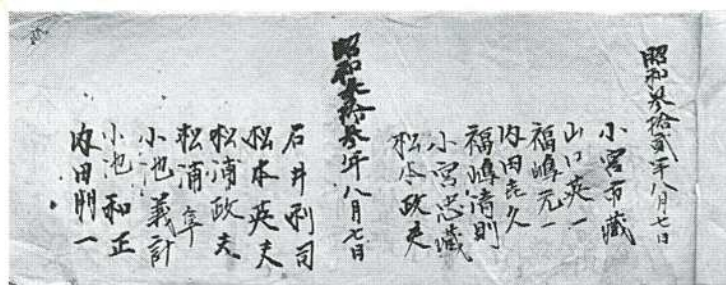 昭和参拾貳年八月七日
小宮市藏
山口英一
福嶋元一
内田克久
福嶋清則
小宮忠藏
松本政夫
昭和参拾参年八月七日
石井利司
松本英夫
松浦政夫
松浦
小池義計
小池和正
内田明一